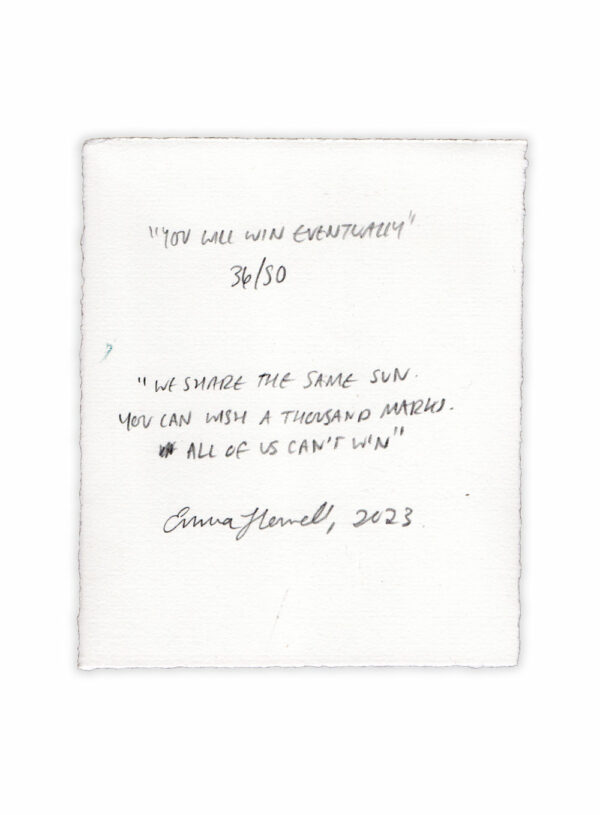 "YOU WILL WIN EVENTUALLY"
36/50
"WE SHARE THE SAME SUN.
YOU CAN WISH A THOUSAND MARKS.
ALL OF US CAN'T WIN"
Emma Howell, 2023